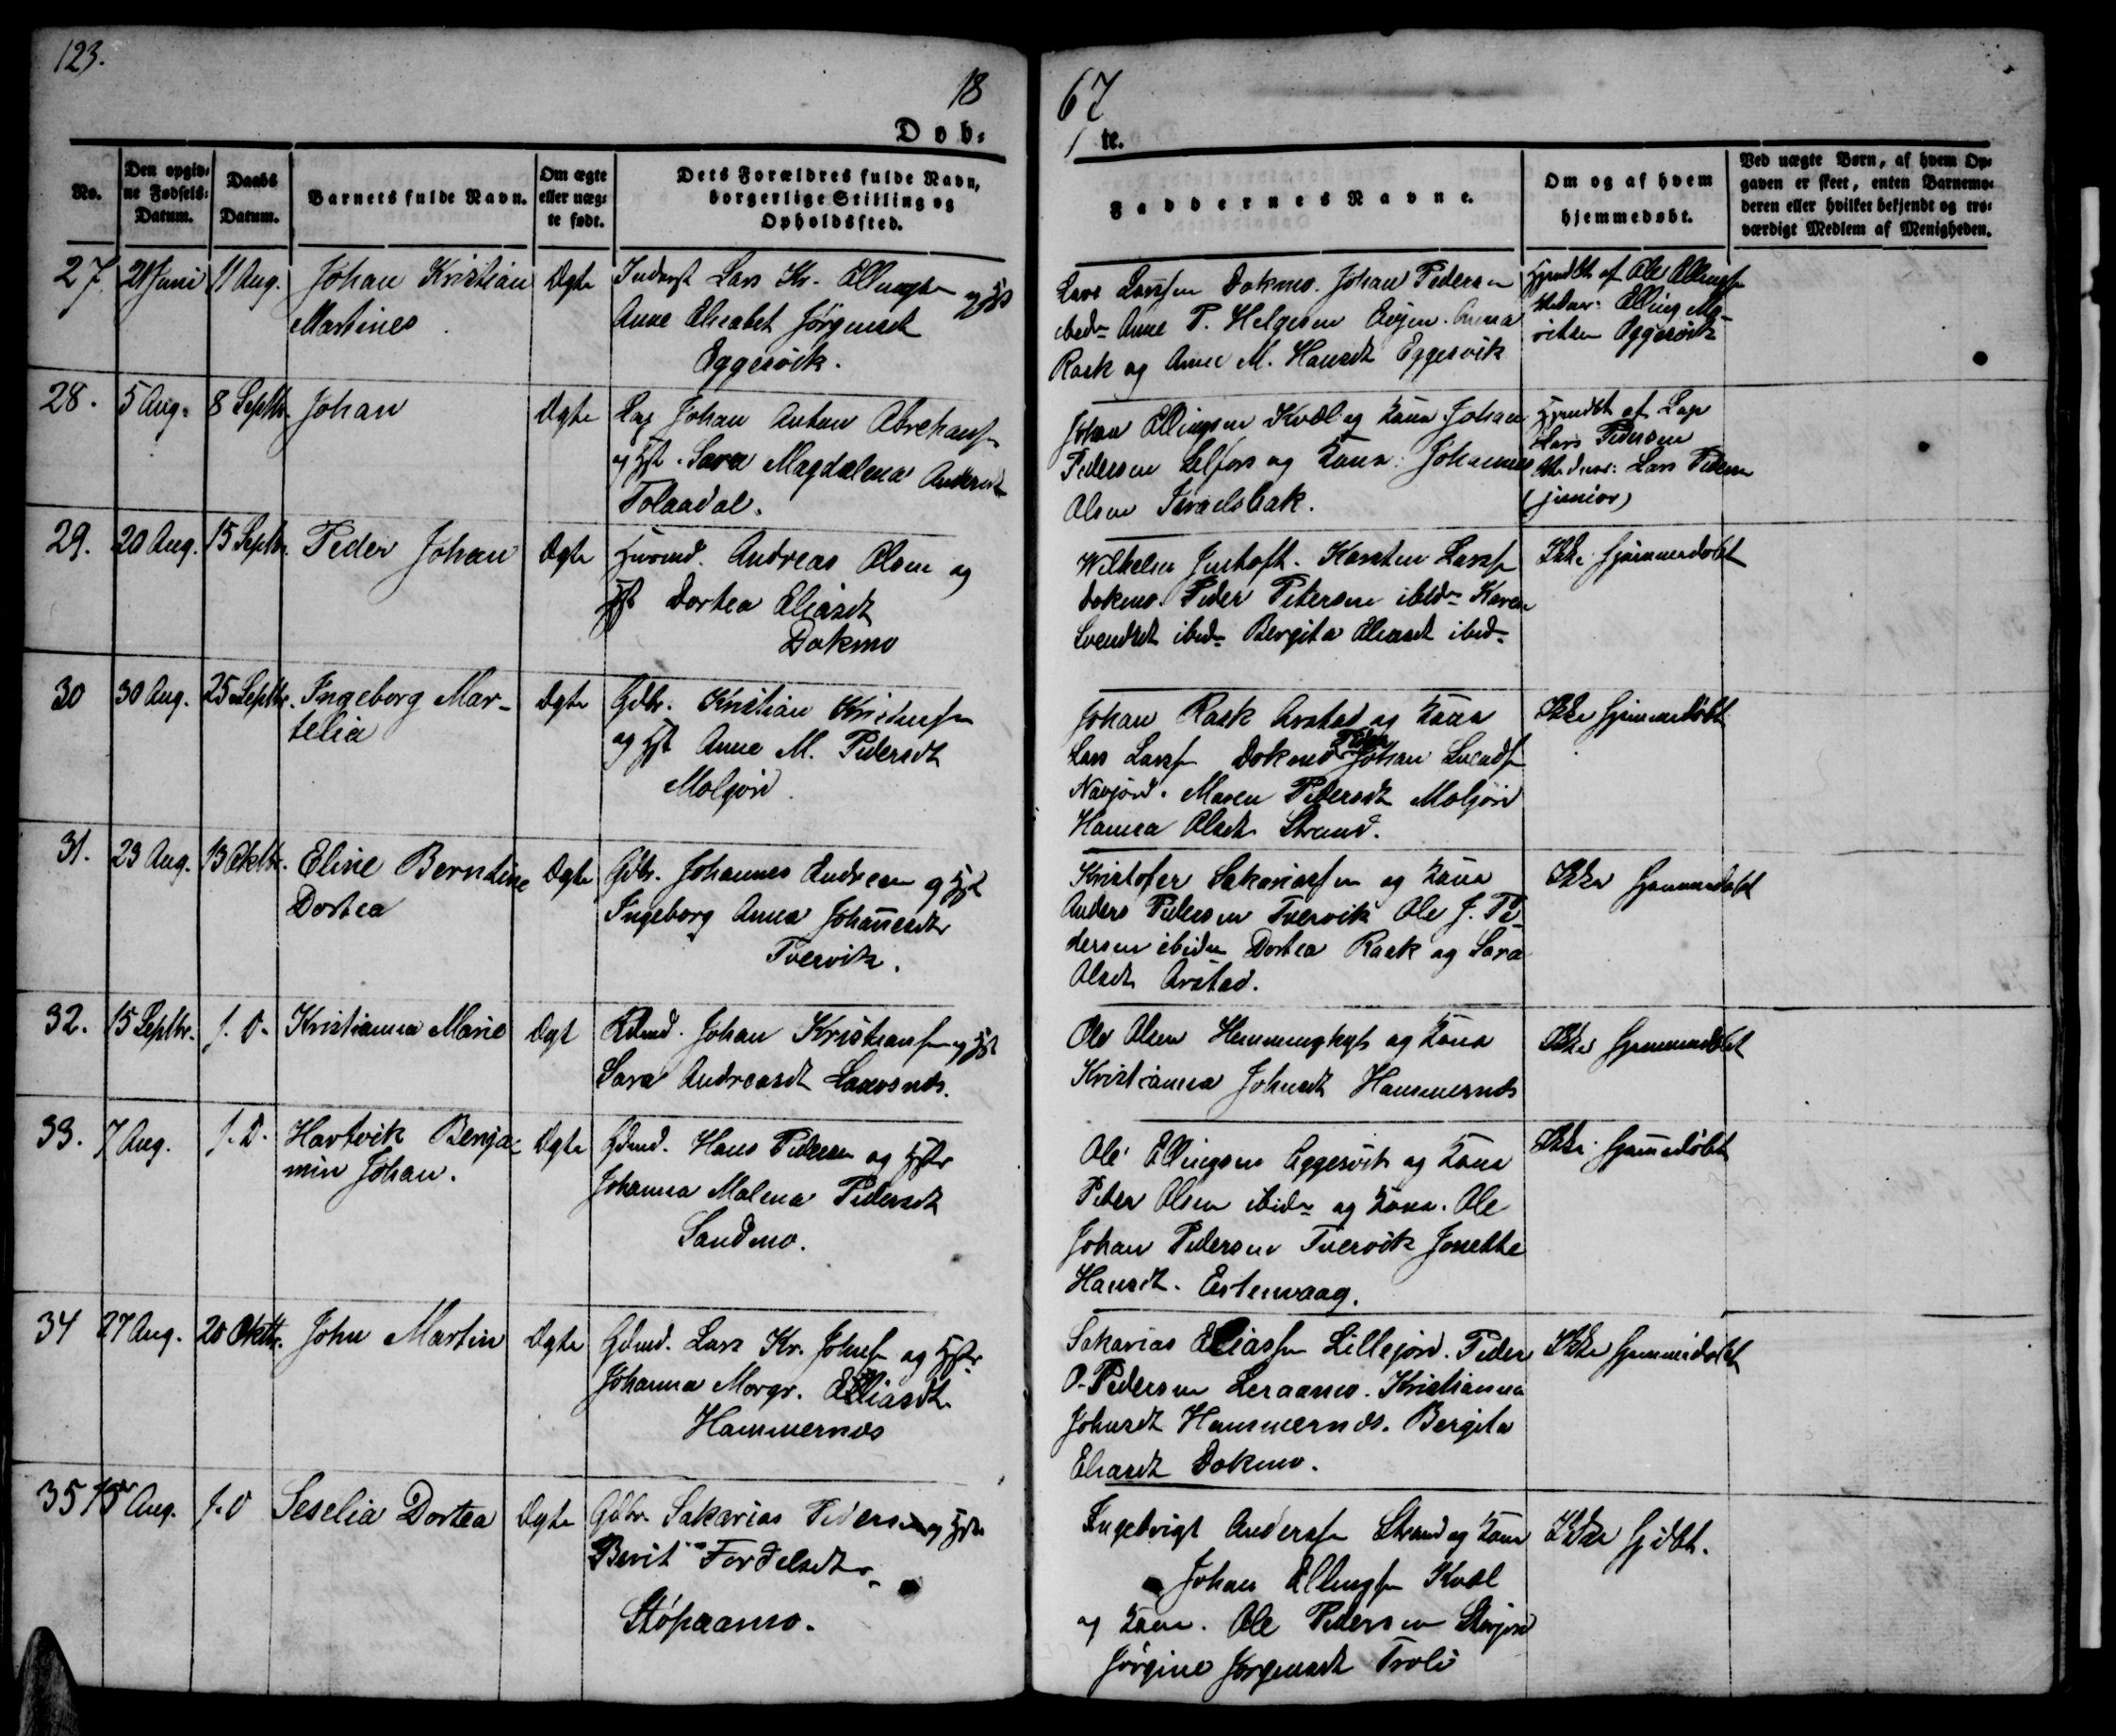 123.
18
67
Døb-
te.
No.
Den opgiv-
ne Fødsels-
Datum.
Daabs
Datum.
Barnets fulde Navn.
Om ægte
eller uæg-
te født.
Dets Forældres fulde Navn,
borgerlige Stilling og
Opholdssted.
Faddernes Navne.
Om og af hvem
hjemmedøbt.
Ved uægte Børn, af hvem Op-
gaven er skeet, enten Barnemo-
deren eller hvilket bekjendt og tro-
værdigt Medlem af Menigheden.
27. 21 Juni 11 Aug. Johan Kristian Ægte Inderst Lars Kr. Ellingsen og Hst
Martines Anne Elisabet Jörgensdt
Eggesvik.
Lars Larssen Dokmo. Johan Pedersen
ibid. Anne P. Helgesen Evjen. Anna
Rask og Anne M. Hansdt Eggesvik
Hjmdbt af Ole Ellingsen
Vidner: Elling
Eggesvik
28. 5 Aug. 8 Septbr. Johan Ægte Lap Johan Anton Abrahams.
og Hst. Sara Magdalena Andersdt
Tolaadal.
Johan Ellingsen Kvæl og Kona Johan
Pedersen Selfors og Kona. Johannes
Olsen Israelsbak.
Hjmdbt af Lap
Lars Pedersen
Vidner: Lars Pedersen
(junior)
29. 20 Aug. 15 Septbr. Peder Johan Ægte Husmd. Andreas Olsen og
Hst Dortea Eliasdt
Dokmo
Wilhelm Karsten Larss.
Dokmo. Peder Petersen ibid. Karen
Svendsdt ibid. Bergita Eliasdt ibid.
Ikke hjemmedøbt
30 30 Aug. 25 Septbr. Ingeborg Mar- Ægte Gdbr. Kristian Kristensen
telia og Hst Anne M. Pedersdt
Moljord.
Johan Rask Arstad og Kona
Lars Larss. Dokmo Peder Johan Svends.
Navjord. Maren Pedersdt Moljord
Hanna Olsdt. Strand.
Ikke hjemmedøbt
31. 23 Aug. 13 Oktbr. Eline Berndine Ægte Gdbr. Johannes Andreasen og Hst
Dortea Ingeborg Anna Johannesdt
Tvervik.
Kristofer Sakariassen og Kona
Anders Pedersen Tvervik Ole J. Pe-
dersen ibid. Dortea Rask og Sara
Olsdt Arstad.
Ikke hjemmedøbt
32. 15 Septbr. f. D. Kristianna Marie Ægt Gdmd. Johan Kristiansen og Hst
Sara Andreasdt Laxosnes.
Ole Olsen Hemminghyt og Kona
Kristianna Johnsdt Hammernes
Ikke hjemmedøbt
33. 7 Aug. f. D. Hartvik Benja- Ægte Gdmd. Hans Pedersen og Hstr
min Johan. Johanna Malena Pedersdt
Sandmo.
Ole Ellingsen Eggesvik og Kona
Peder Olsen ibid. og Kona. Ole
Johan Pedersen Tvervik Jonette
Hansdt. Estenvaag.
Ikke hjemmedøbt
34 27 Aug. 20 Oktbr. John Martin Ægte Gdmd. Lars Kr. Johns. og Hstr
Johanna Margr. Eliasdt
Hammernes
Sakarias Eliassen Lillejord. Peder
O. Pedersen Leraamo. Kristianna
Johnsdt Hammernes. Bergita
Eliasdt Dokmo.
Ikke hjemmedøbt
35 15 Aug. f. D Seselia Dortea Ægte Gdbr. Sakarias Pedersen og Hstr
Berit Fordelsdtr.
Støpaamo.
Ingebrigt Anderssen Strand og Kona
Johan Ellingsen Kvæl
og Kona. Ole Pedersen Storjord
Jörgine Jörgensdt Troli
Ikke Hjdbt.